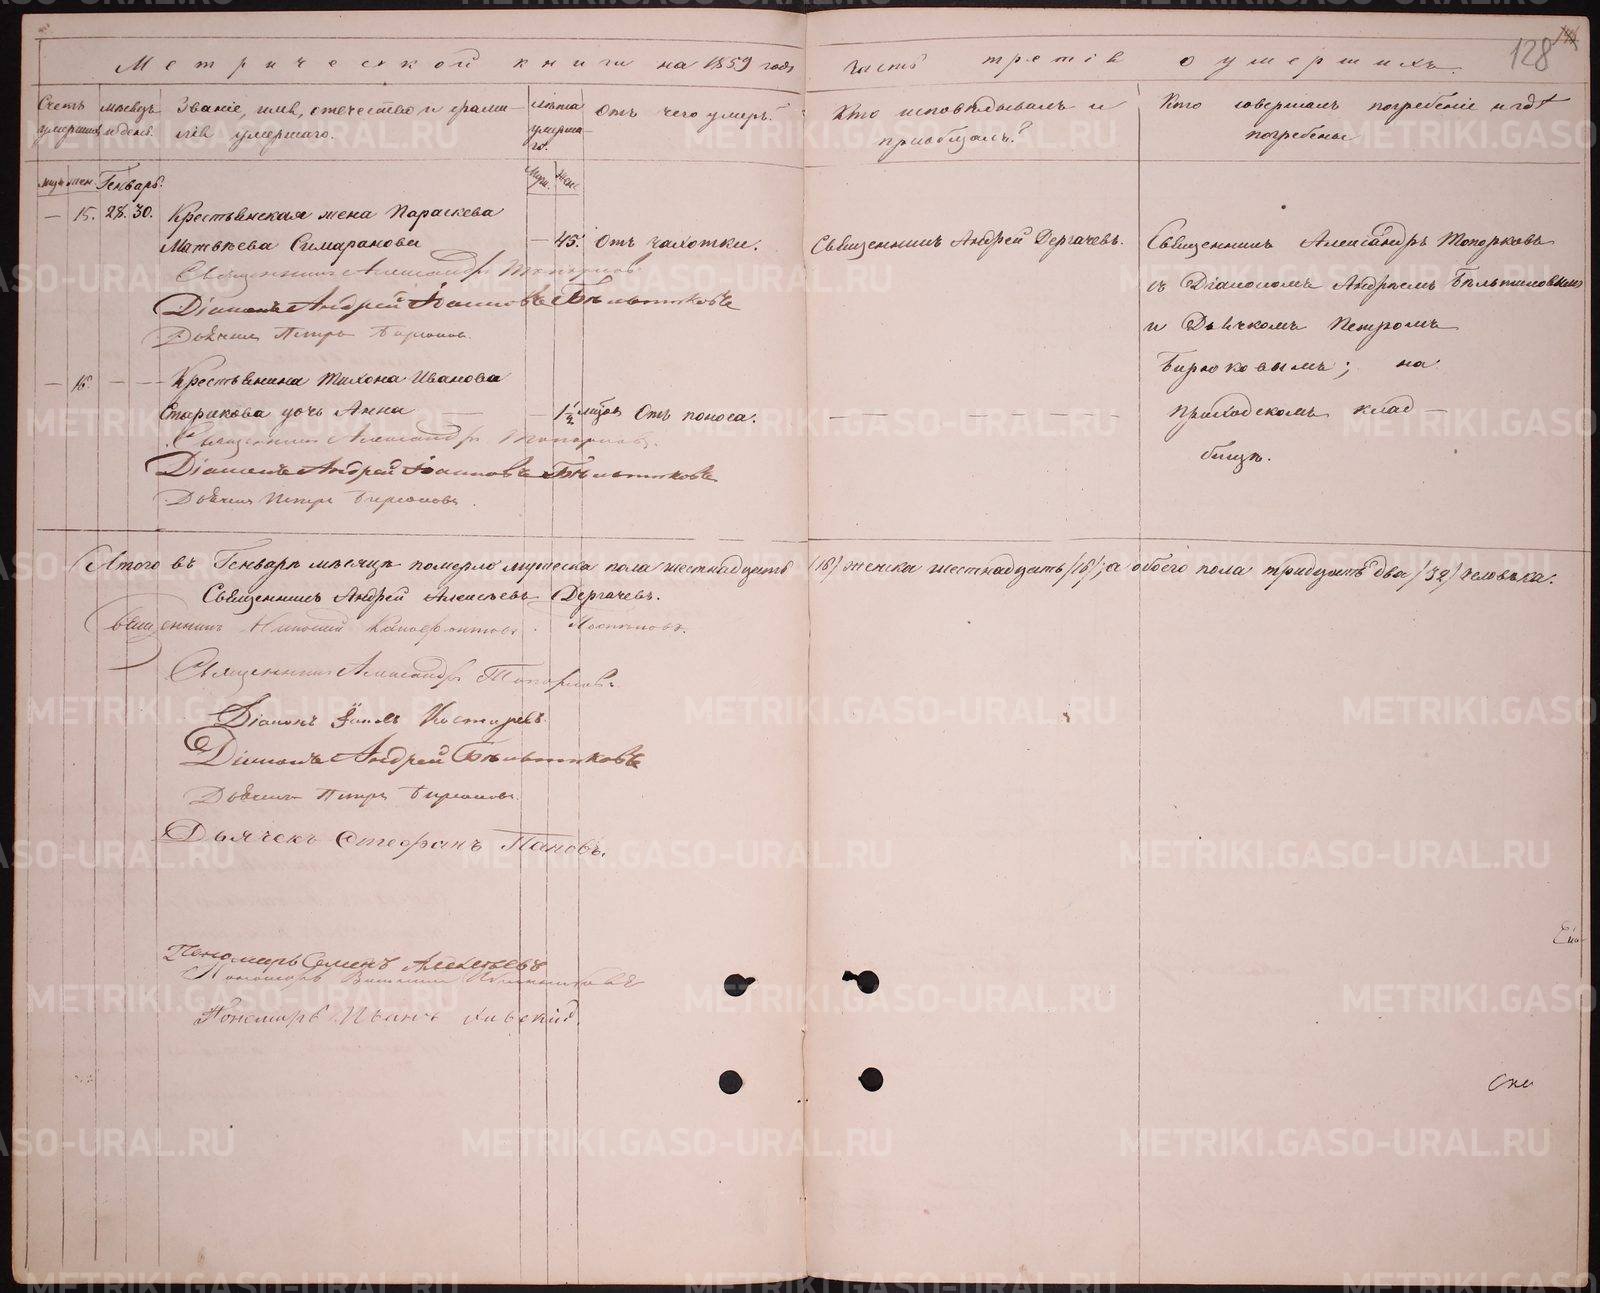 Метрической книги на 1859 годъ
часть третiя о умершихъ.
128
Счетъ умершихъ
мѣсяцъ и день.
Званіе, имя, отечество и фамилія умершаго.
лѣта умершаго.
Отъ чего умеръ.
Кто исповѣдывалъ и пріобщалъ?
Кто совершалъ погребеніе и гдѣ погребены
муж. жен. Генварь.
Муж. Жен.
— 15. 28. 30. Крестьянская жена Параскева
Матвѣева Симаранова — 45. Отъ чахотки.
Священникъ Андрей Дергачевъ.
Священникъ Александръ Топорковъ
съ Діакономъ Андреемъ Бѣльтиковымъ
и Дьячкомъ Петромъ
Бирюковымъ; на
приходскомъ клад-
бищѣ.
Священникъ Александръ Топорковъ
Діаконъ Андрей Іоанновъ Бѣльтиковъ
Дьячекъ Петръ Бирюковъ.
— 16. — — Крестьянина Тихона Иванова
Старикова дочь Анна — 1½ мѣсяц Отъ поноса.
Священникъ Александръ Топорковъ.
Діаконъ Андрей Іоанновъ Бѣльтиковъ
Дьячекъ Петръ Бирюковъ.
Итого въ Генварѣ мѣсяцѣ померло мужеска пола шестнадцать /16/ женска шестнадцать /16/; а обоего пола тридцать два /32/ человѣка.
Священникъ Андрей Алексѣевъ Дергачевъ.
Священникъ
Священникъ Александръ Топорковъ.
Діаконъ Іаковъ Костаревъ.
Діаконъ Андрей Бѣльтиковъ
Дьячекъ Петръ Бирюковъ.
Дьячекъ Стефанъ Паповъ.
Пономарь Семенъ Алексѣевъ
Пономарь
Пономарь Иванъ
METRIKI.GASO-URAL.RU